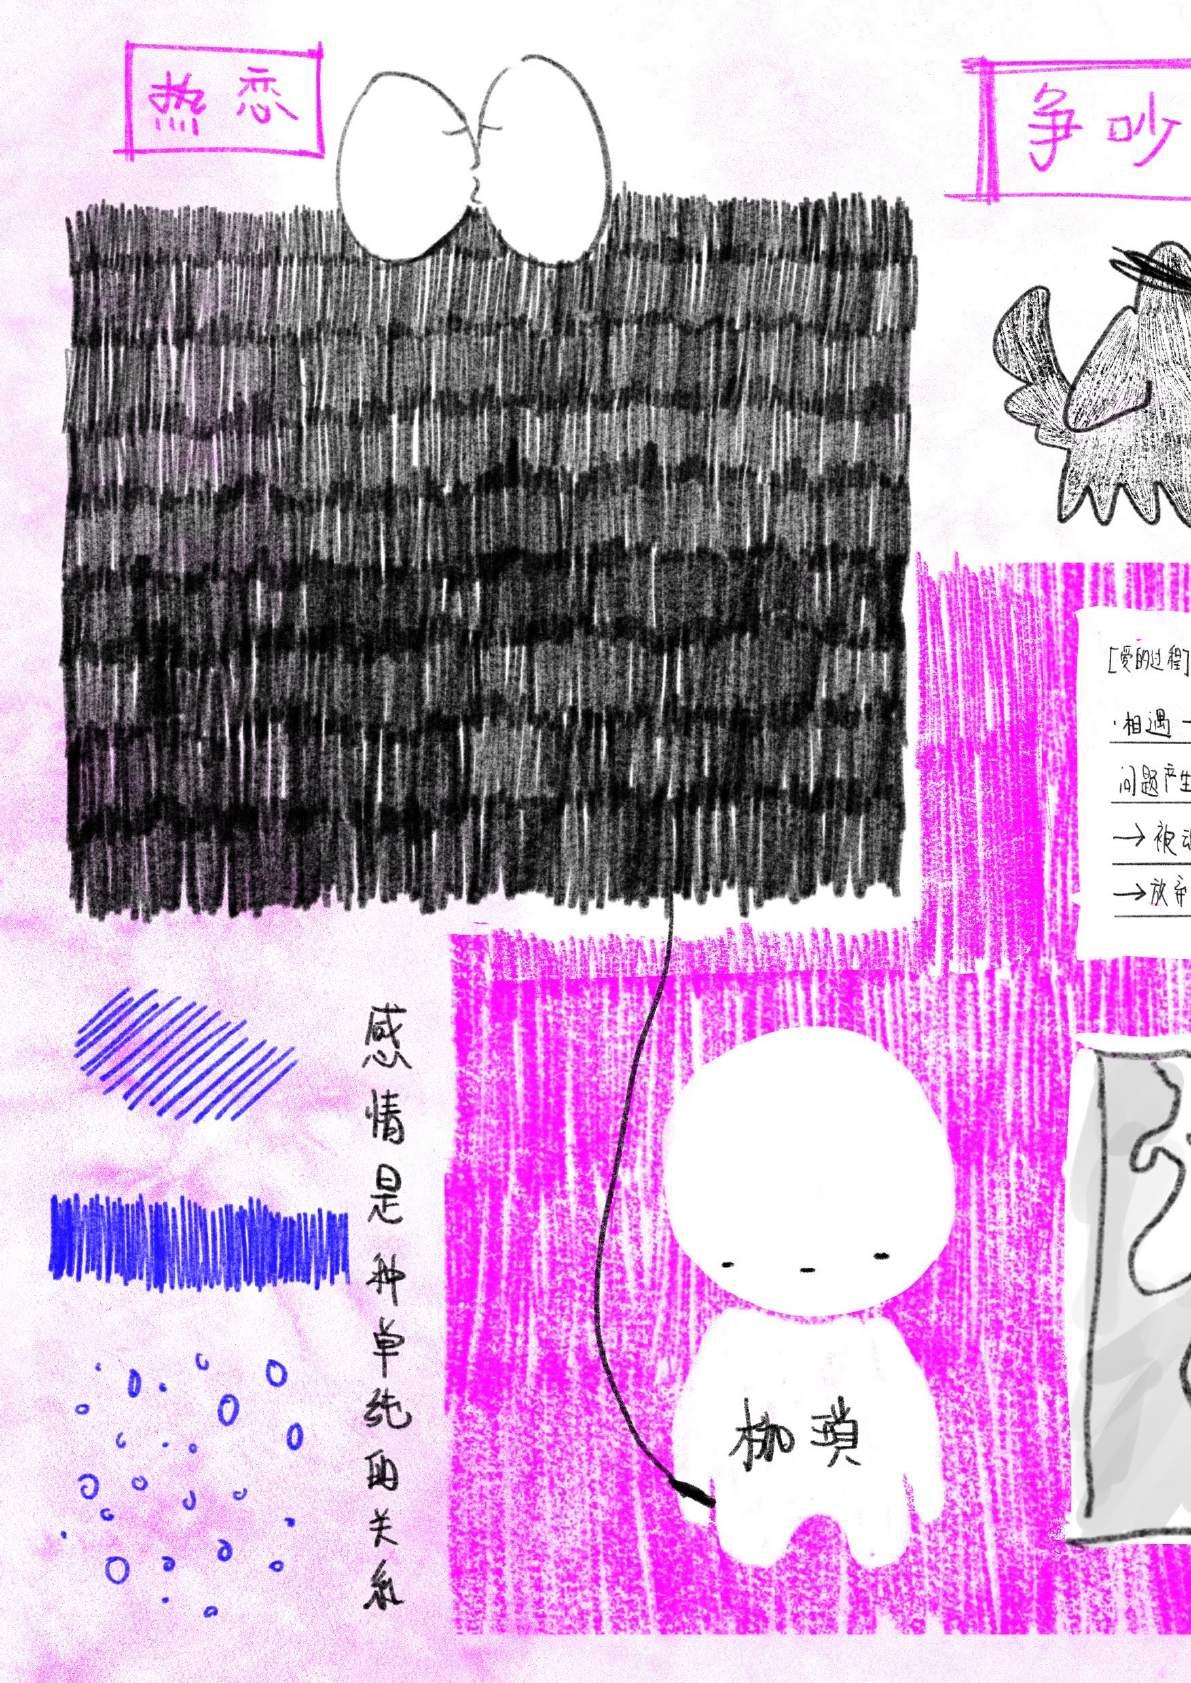 热恋
争吵
[爱的过程]
·相遇一
问题产生
→被动
→放弃
感情是种单纯的关系
枷锁